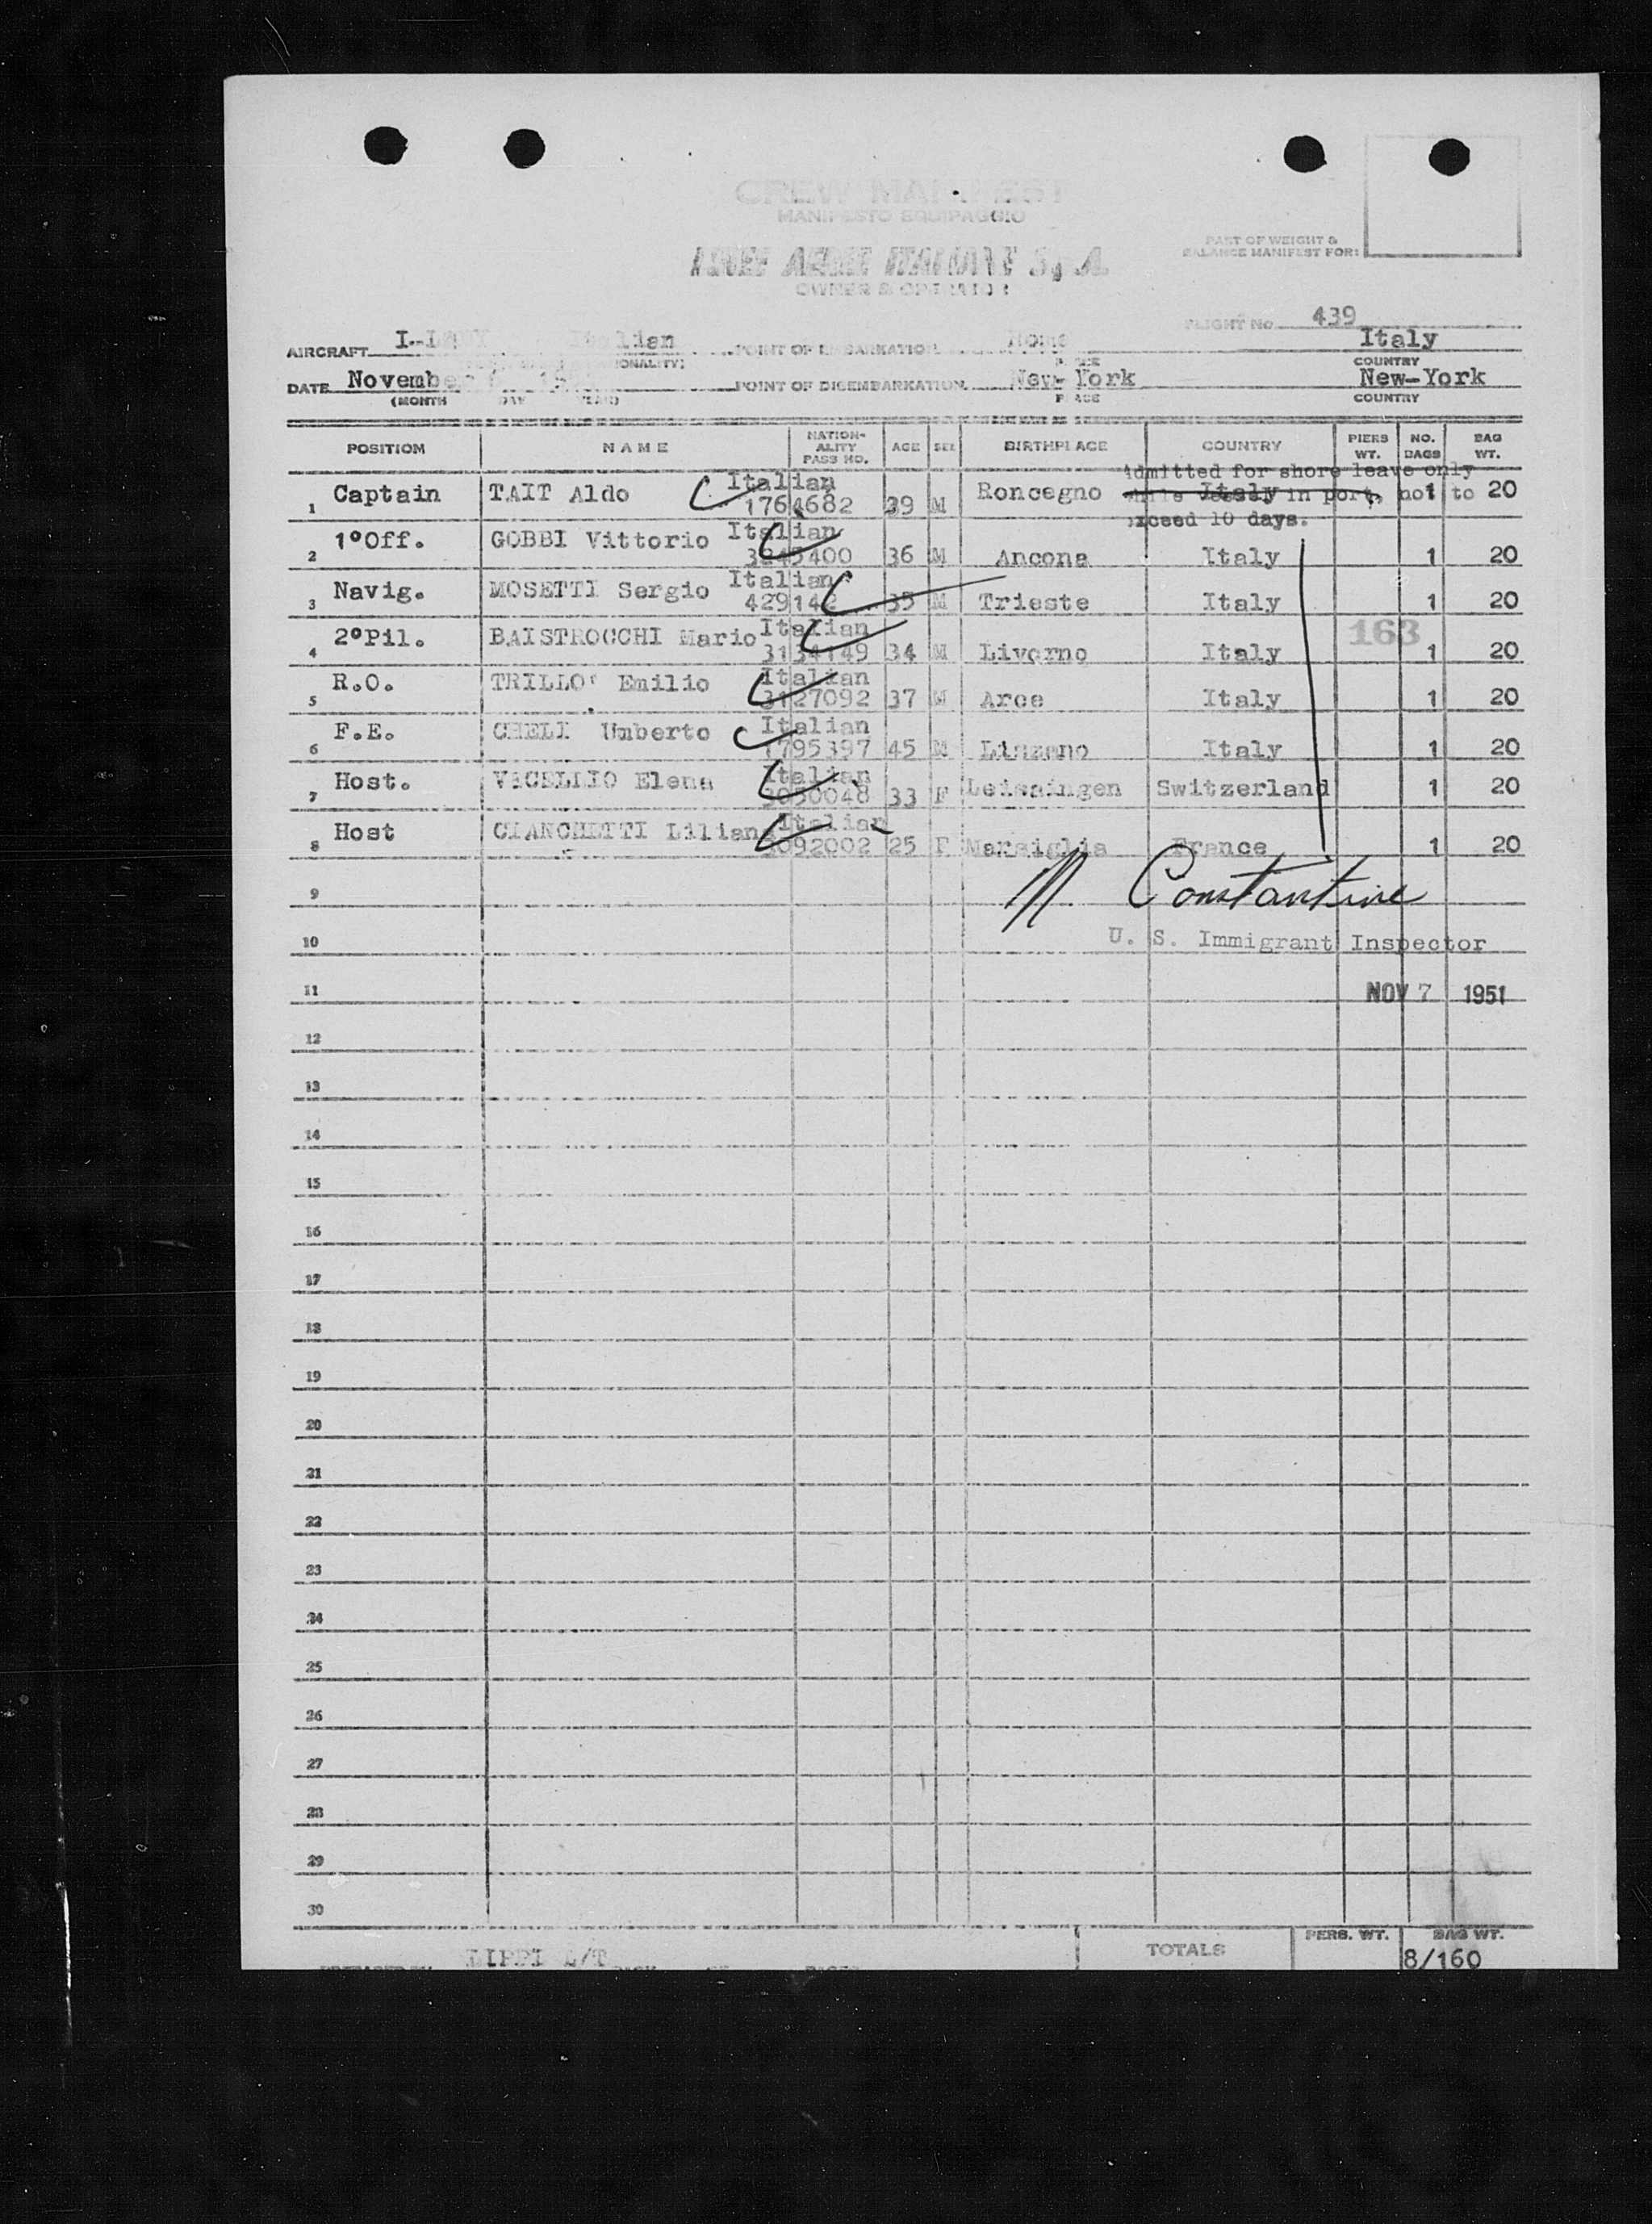 CREW MANIFEST
MANIFESTO EQUIPAGGIO
LINEE AEREE ITALIANE S.p.A.
OWNER & OPERATOR
PART OF WEIGHT &
BALANCE MANIFEST FOR:
FLIGHT No 439
AIRCRAFT Italian POINT OF EMBARKATION Rome Italy
(NATIONALITY) PLACE COUNTRY
DATE November POINT OF DISEMBARKATION New-York New-York
(MONTH DAY YEAR) PLACE COUNTRY
POSITION NAME NATION-ALITY PASS NO. AGE SEX BIRTHPLACE COUNTRY PIERS WT. NO. BAGS BAG WT.
Admitted for shore leave only
while vessel in port, not to
exceed 10 days.
1 Captain TAIT Aldo Italian 1764682 39 M Roncegno Italy 1 20
2 1°Off. GOBBI Vittorio Italian 3245400 36 M Ancona Italy 1 20
3 Navig. MOSETTI Sergio Italian 429142 35 M Trieste Italy 1 20
163
4 2°Pil. BAISTROCCHI Mario Italian 3134149 34 M Livorno Italy 1 20
5 R.O. TRILLO' Emilio Italian 3127092 37 M Arce Italy 1 20
6 F.E. CHELI Umberto Italian 1795397 45 M Italy 1 20
7 Host. VACELLIO Elena Italian 3050048 33 F Leissingen Switzerland 1 20
8 Host CIANCHETTI Liliana Italian 3092002 25 F Marsiglia France 1 20
9 N Constantine
10 U. S. Immigrant Inspector
11 NOV 7 1951
12
13
14
15
16
17
18
19
20
21
22
23
24
25
26
27
28
29
30
TOTALS PERS. WT. BAG WT.
LIPPI L/T 8/160